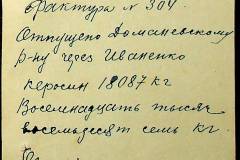 Фрактура № 304.
Отпущено Доманевскому
р-ну через Иваненко
керосин 18087 кг
Восемнадцать тысяч
восемьдесят семь кг.